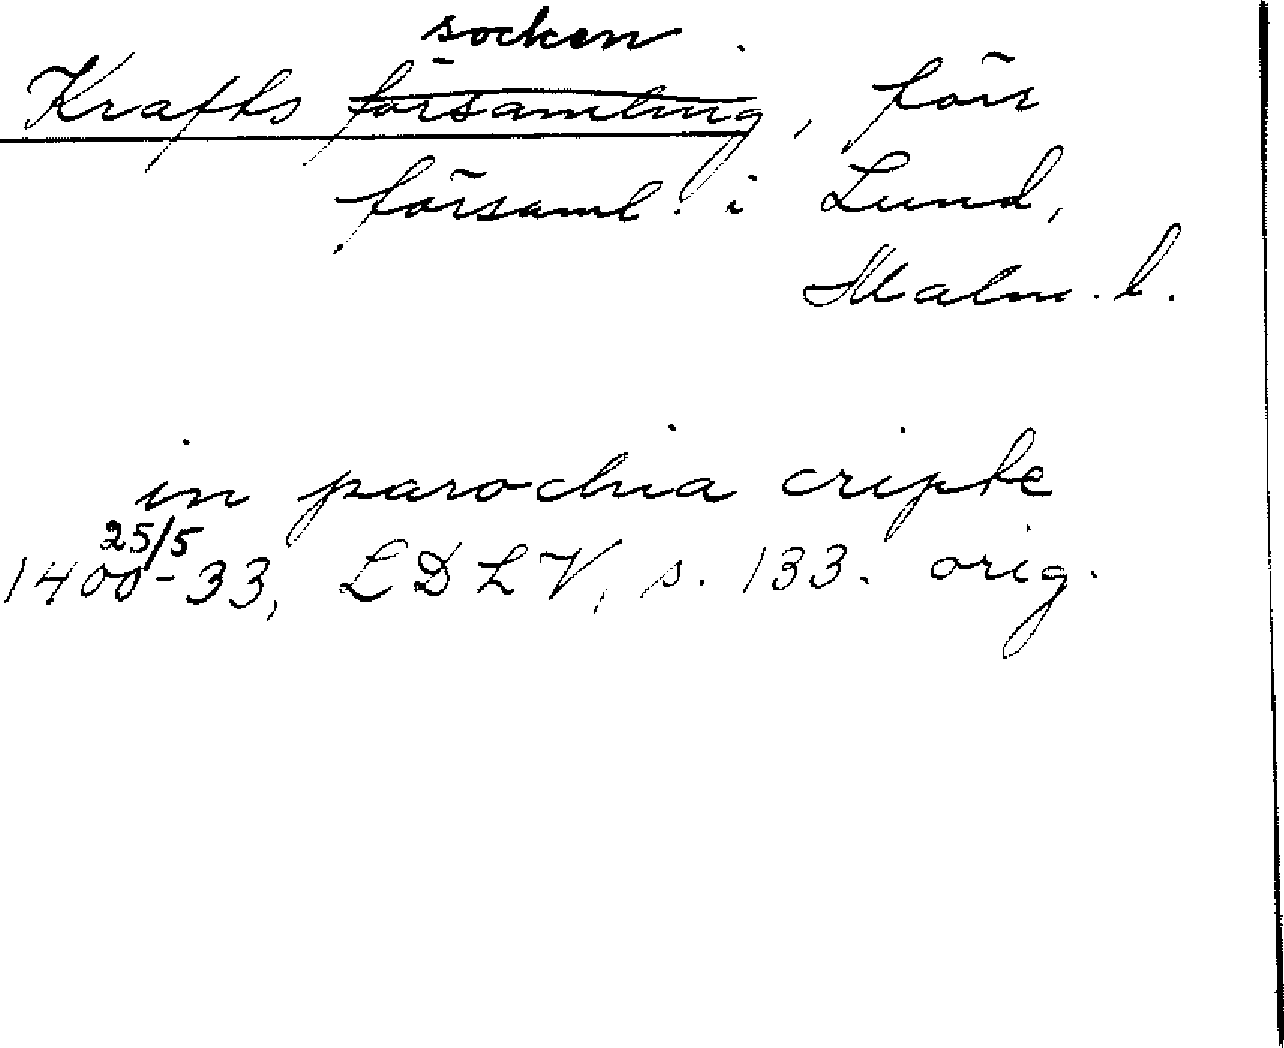 socken
Krafts församling, förr
församl. i Lund,
Malm. l.
in parochia cripte
25/5
1400-33, LDLV, s. 133. orig.